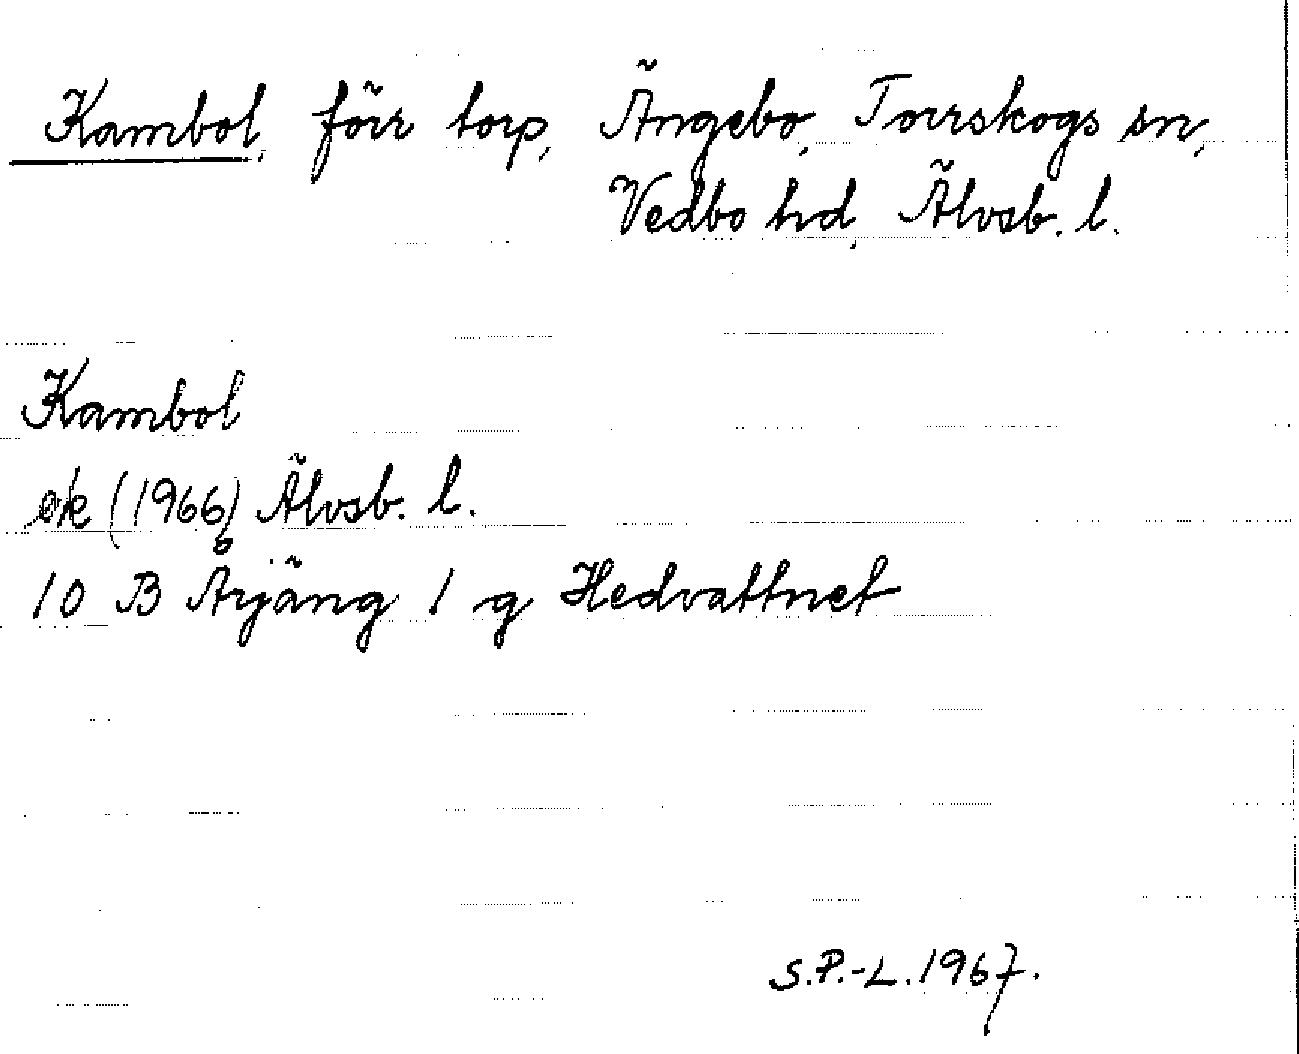 Kambol, förr torp, Ängebo, Torrskogs sn,
Vedbo hd, Älvsb. l.
Kambol
ek (1966) Älvsb. l.
10 B Årjäng 1 g Hedvattnet
S.P.-L. 1967.